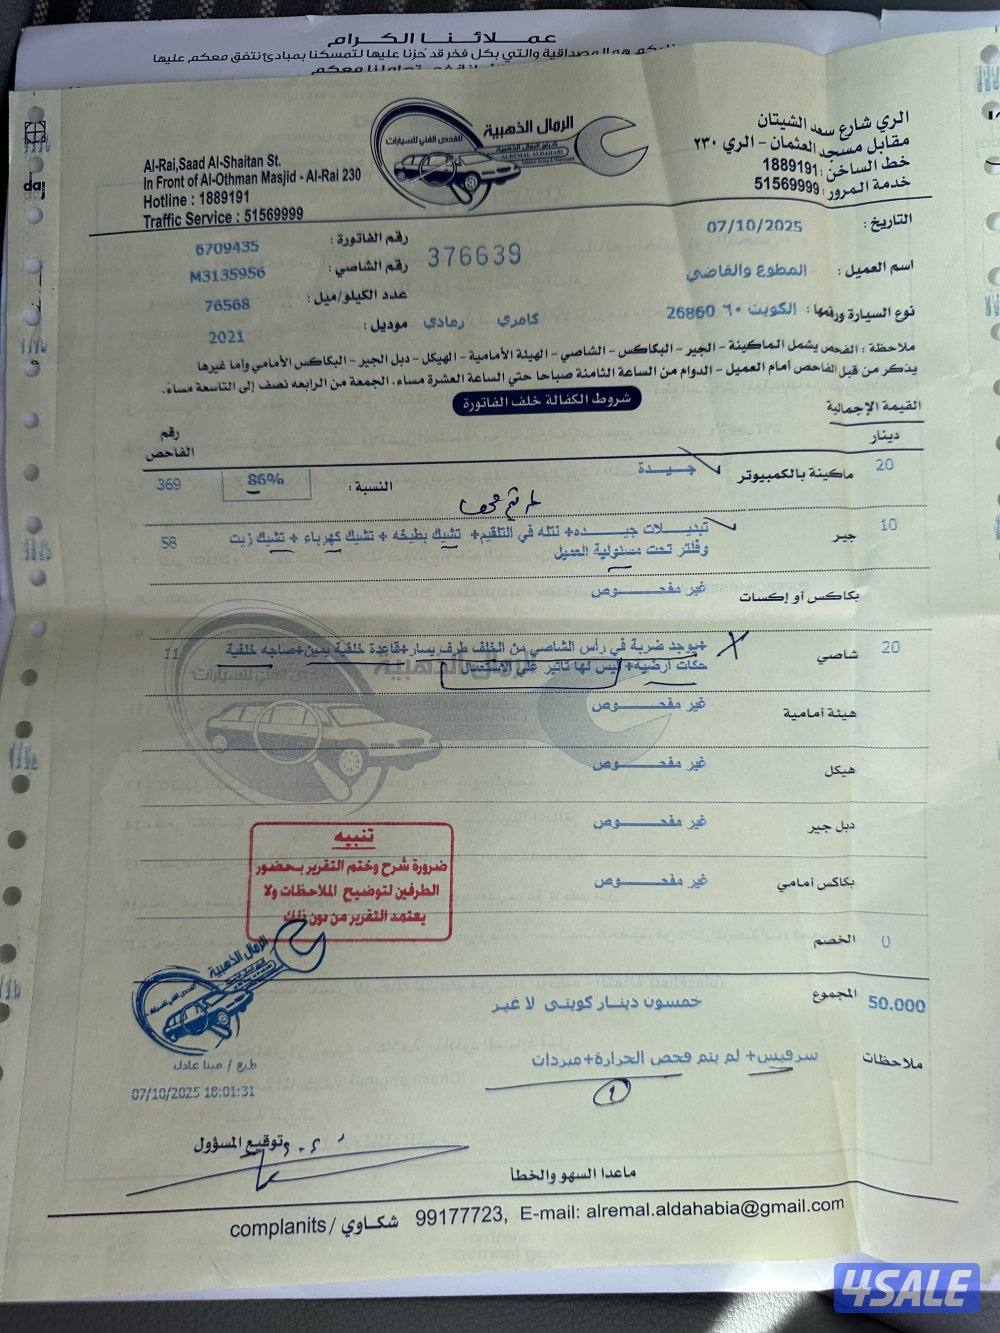 عمــلائـنـا الكـرام
الري شارع سعد الشيتان
مقابل مسجد العثمان - الري ٢٣٠
خط الساخن : 1889191
خدمة المرور : 51569999
الرمال الذهبية
للفحص الفني للسيارات
Al-Rai,Saad Al-Shaitan St.
In Front of Al-Othman Masjid - Al-Rai 230
Hotline : 1889191
Traffic Service : 51569999
التاريخ : 07/10/2025
376639
رقم الفاتورة : 6709435
اسم العميل : المطوع والقاضي
رقم الشاصي : M3135956
نوع السيارة ورقمها : الكويت ٦٠ 26860 كامري رمادي
عدد الكيلو/ميل : 76568
موديل : 2021
ملاحظة : الفحص يشمل الماكينة - الجير - البكاكس - الشاصي - الهيئة الأمامية - الهيكل - دبل الجير - البكاكس الأمامي وأما غيرها
يذكر من قبل الفاحص أمام العميل - الدوام من الساعة الثامنة صباحا حتي الساعة العشرة مساء، الجمعة من الرابعه نصف إلى التاسعة مساءً.
شروط الكفالة خلف الفاتورة
القيمة الإجمالية
دينار
رقم الفاحص
20 ماكينة بالكمبيوتر جـيـدة النسبة : 86% 369
10 جير تبديـــلات جيـــده+ نتله في التلقيم+ تشيك بطيخه + تشيك كهرباء + تشيك زيت 58
وفلتر تحت مسئولية العميل
بكاكس أو إكسات غير مفحـــوص
20 شاصي +يوجد ضربة في رأس الشاصي من الخلف طرف يسار+قاعدة خلفية يمين+صاجه خلفية 11
حكات ارضيه+ ليس لها تاثير على الإستعمال
هيئة أمامية غير مفحـــوص
هيكل غير مفحـــوص
دبل جير غير مفحـــوص
بكاكس أمامي غير مفحـــوص
الخصم 0
تنبيه
ضرورة شرح وختم التقرير بحضور
الطرفين لتوضيح الملاحظات ولا
يعتمد التقرير من دون ذلك
المجموع 50.000 خمسون دينار كويتى لا غير
الرمال الذهبية
ملاحظات سرفيس+ لم يتم فحص الحرارة+مبردات
طبع / مينا عادل
07/10/2025 18:01:31
توقيع المسؤول
ماعدا السهو والخطأ
complanits / شكاوي 99177723, E-mail: alremal.aldahabia@gmail.com
4SALE